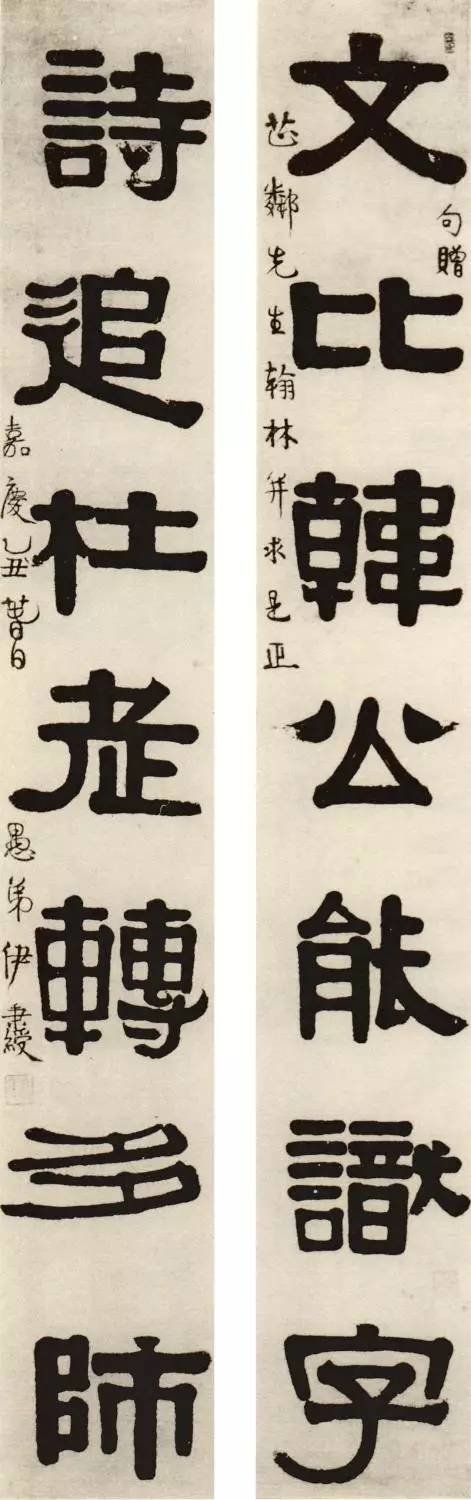 文比韓公能識字
句贈
芷鄰先生翰林并求是正
詩追杜老轉多師
嘉慶乙丑暮春
愚弟伊秉綬